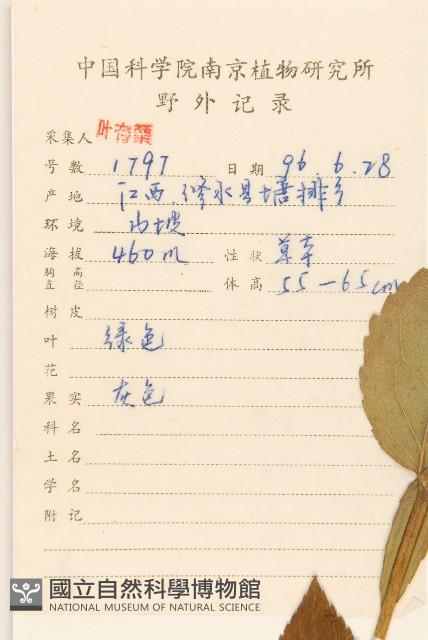 中国科学院南京植物研究所
野外记录
采集人 叶存粟
号数 1797 日期 96.6.28
产地 江西.修水县塘排乡
环境 山坡
海拔 460m 性状 草本
胸高直径 体高 55-65cm
树皮
叶 绿色
花
果实 灰色
科名
土名
学名
附记
國立自然科學博物館
NATIONAL MUSEUM OF NATURAL SCIENCE